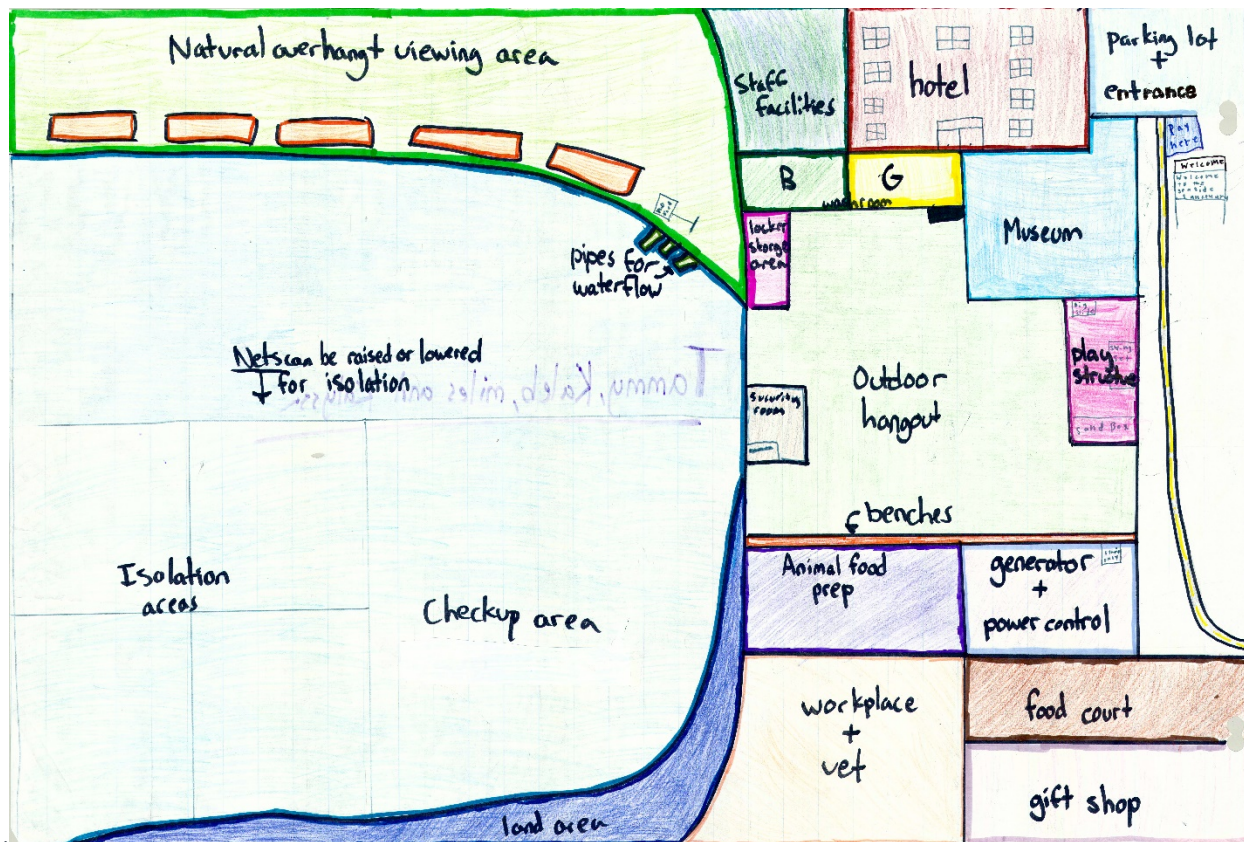 Natural overhang + viewing area
Staff
facilities
hotel
parking lot
+
entrance
Pay
here
Welcome
Welcome
to my
seaside
Sanctuary
B
G
washroom
Museum
locker
storge
area
pipes for
waterflow
Nets can be raised or lowered
for isolation
Tammy, Kaleb, miles and
Outdoor
hangout
play
structure
Sand Box
Security
room
benches
Isolation
areas
Checkup area
Animal food
prep
generator
+
power control
workplace
+
vet
food court
gift shop
land area